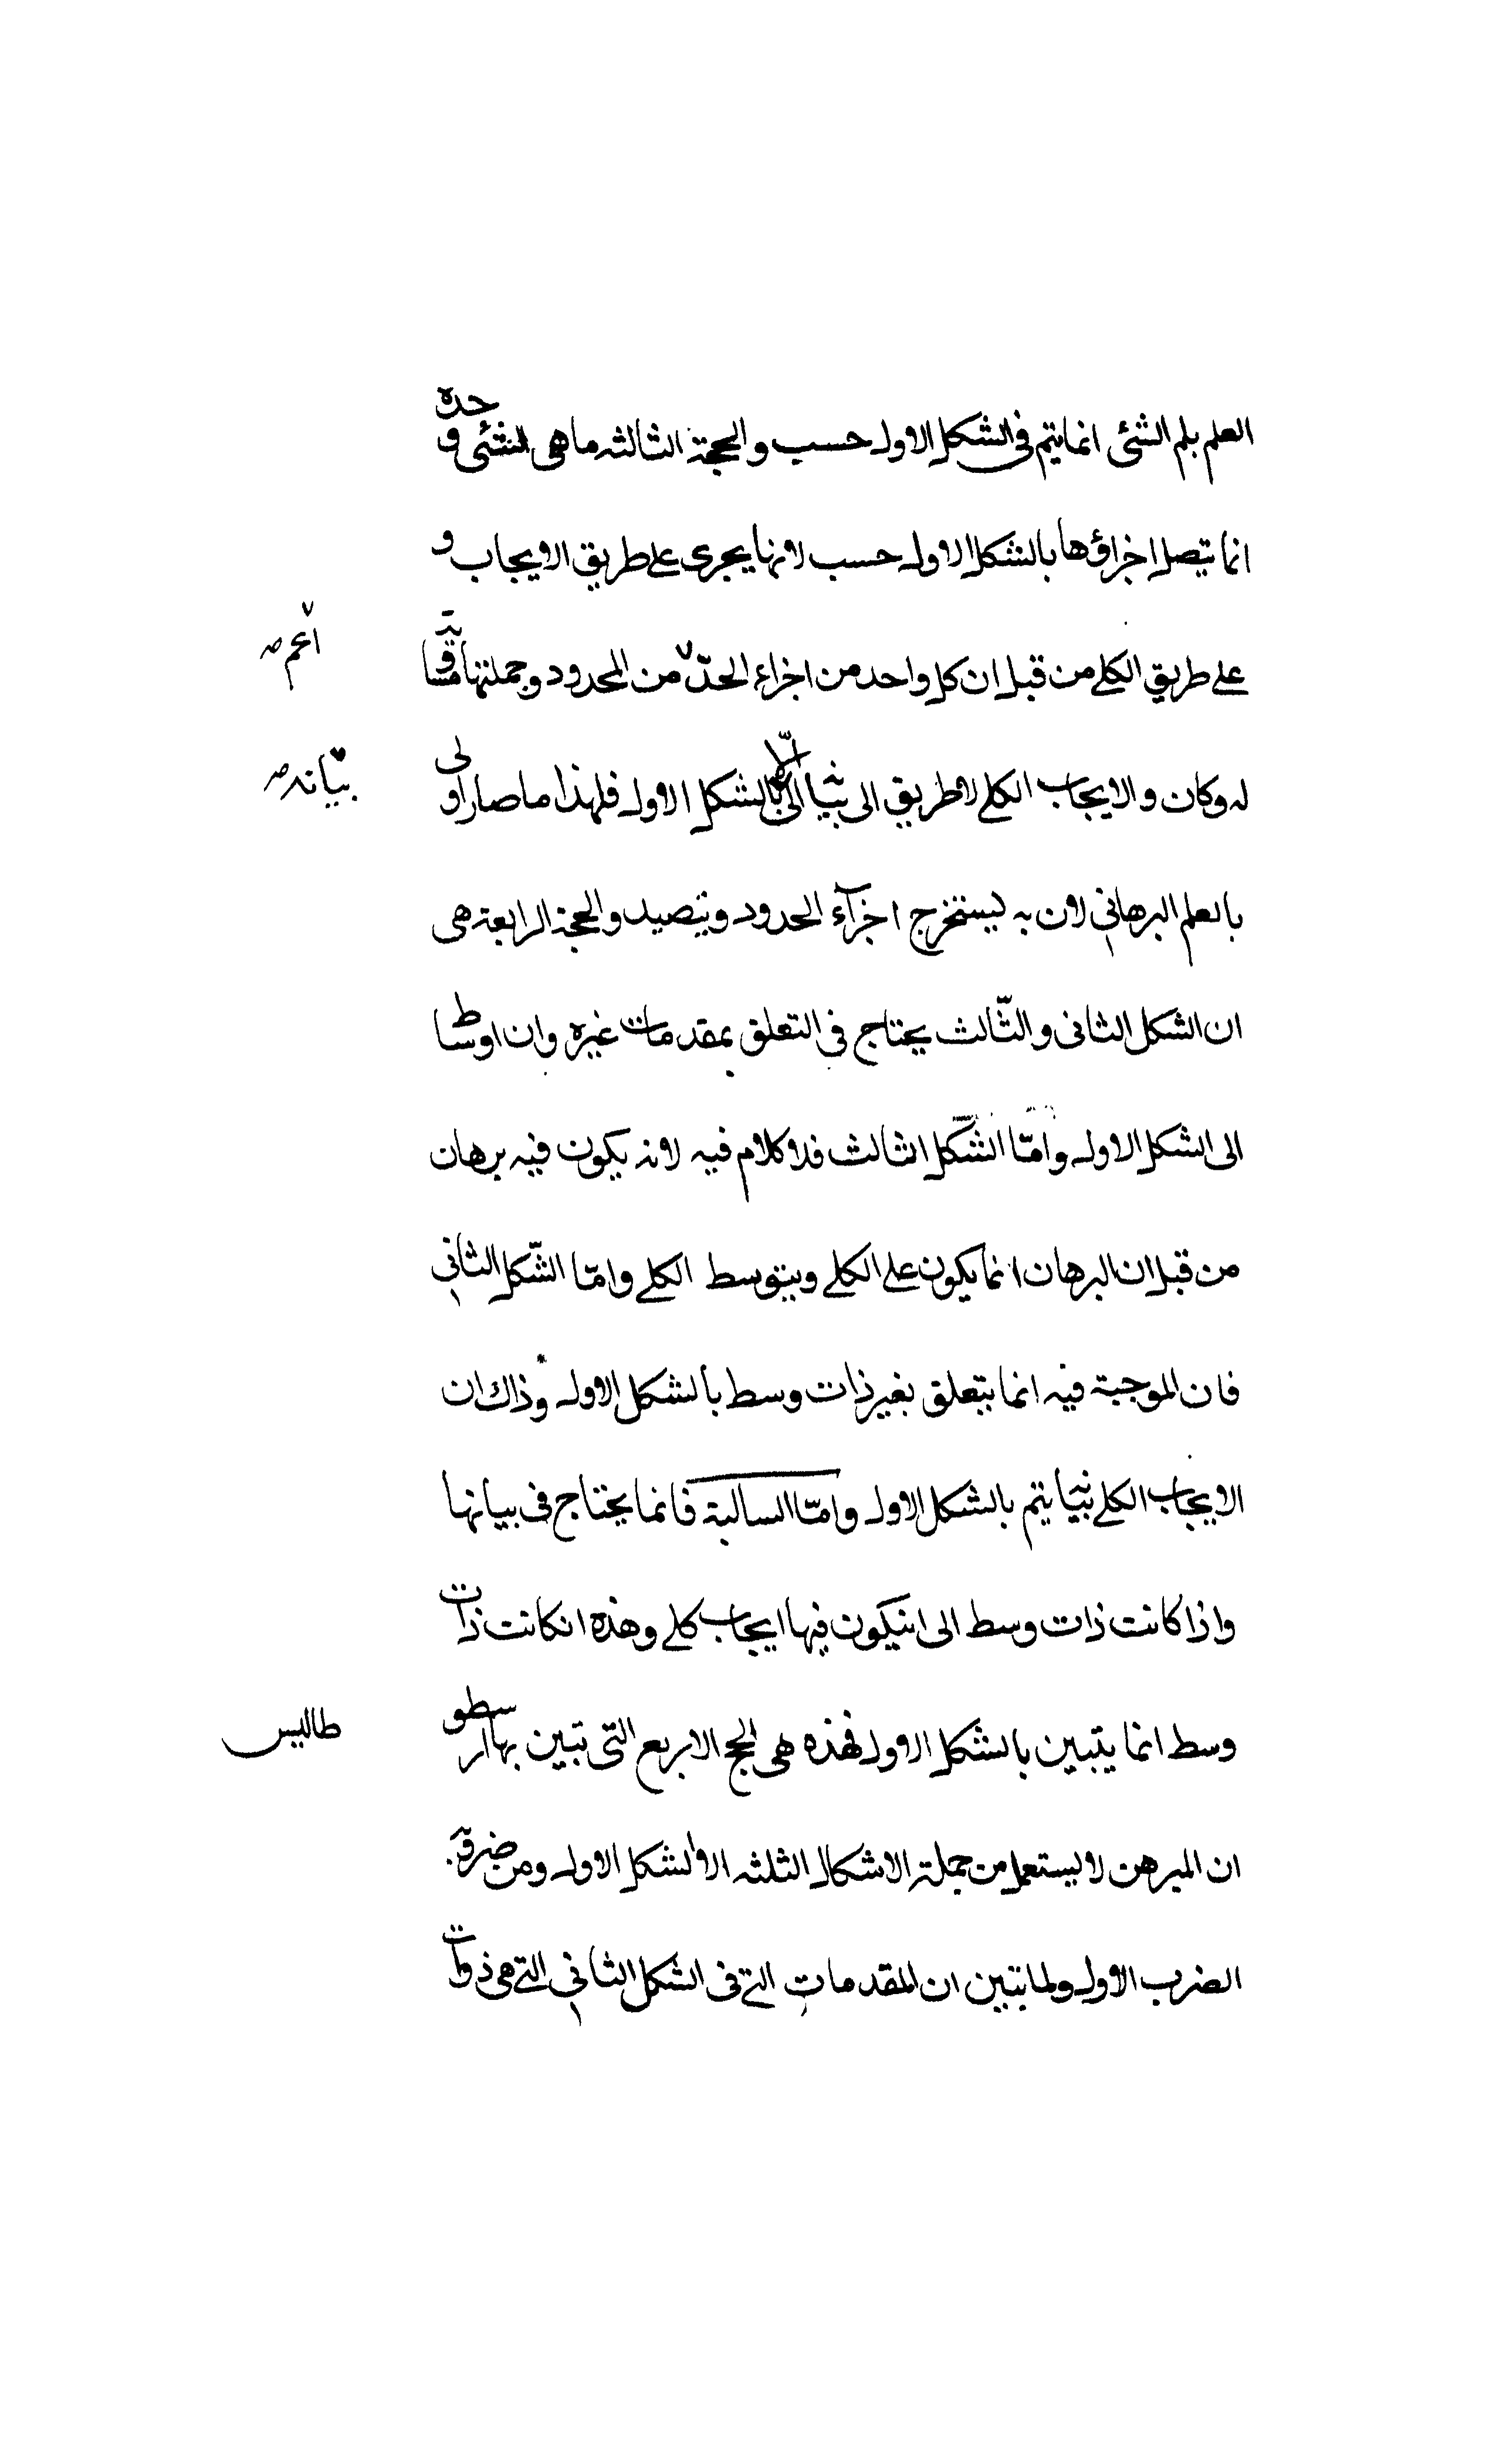 العلم بلم الشئ انما يتم فى الشكل الاول حسب والحجة الثالثه ما هى الشئ وحده
انما يتصل اجزاؤها بالشكل الاول حسب لانها يجرى على طريق الايجاب و
على طريق الكلى من قبل ان كل واحد من اجزاء الحدّ من المحدود وجملتها مساوقة
اعم صه
له وكان والايجاب الكلى لا طريق الى الا بالشكل الاول فلهذا ما صار اولى
بيانه صه
بالعلم البرهانى لان به يستخرج اجزآء الحدود ويتصيد والحجة الرابعة هى
ان الشكل الثانى والثّالث يحتاج فى التعلق بمقدمات غيره وان اوسطا
الى الشكل الاول وامّا الشكل الثالث فلا كلام فيه لانه يكون فيه برهان
من قبل ان البرهان انما يكون على الكلى ويتوسط الكلى وامّا الشّكل الثانى
فان الموجبة فيه انما يتعلق بغير ذات وسط بالشكل الاول وذاك ان
الايجاب الكلى يتم بالشكل الاول وامّا السالبة فانما يحتاج فى بيانها
واذا كانت ذات وسط الى ان يكون فيها ايجاب كلى وهذه ان كانت ذات
وسط انما يتبين بالشكل الاول فهذه هى الحجج الاربع التى تبين بها ارسطو
طاليس
ان المبرهن لا يستعمل من جملة الاشكال الثلثه الا الشكل الاول ومن ضروبه
الضرب الاول ولما تبين ان المقدمات التى فى الشكل الثانى التى هى ذوات